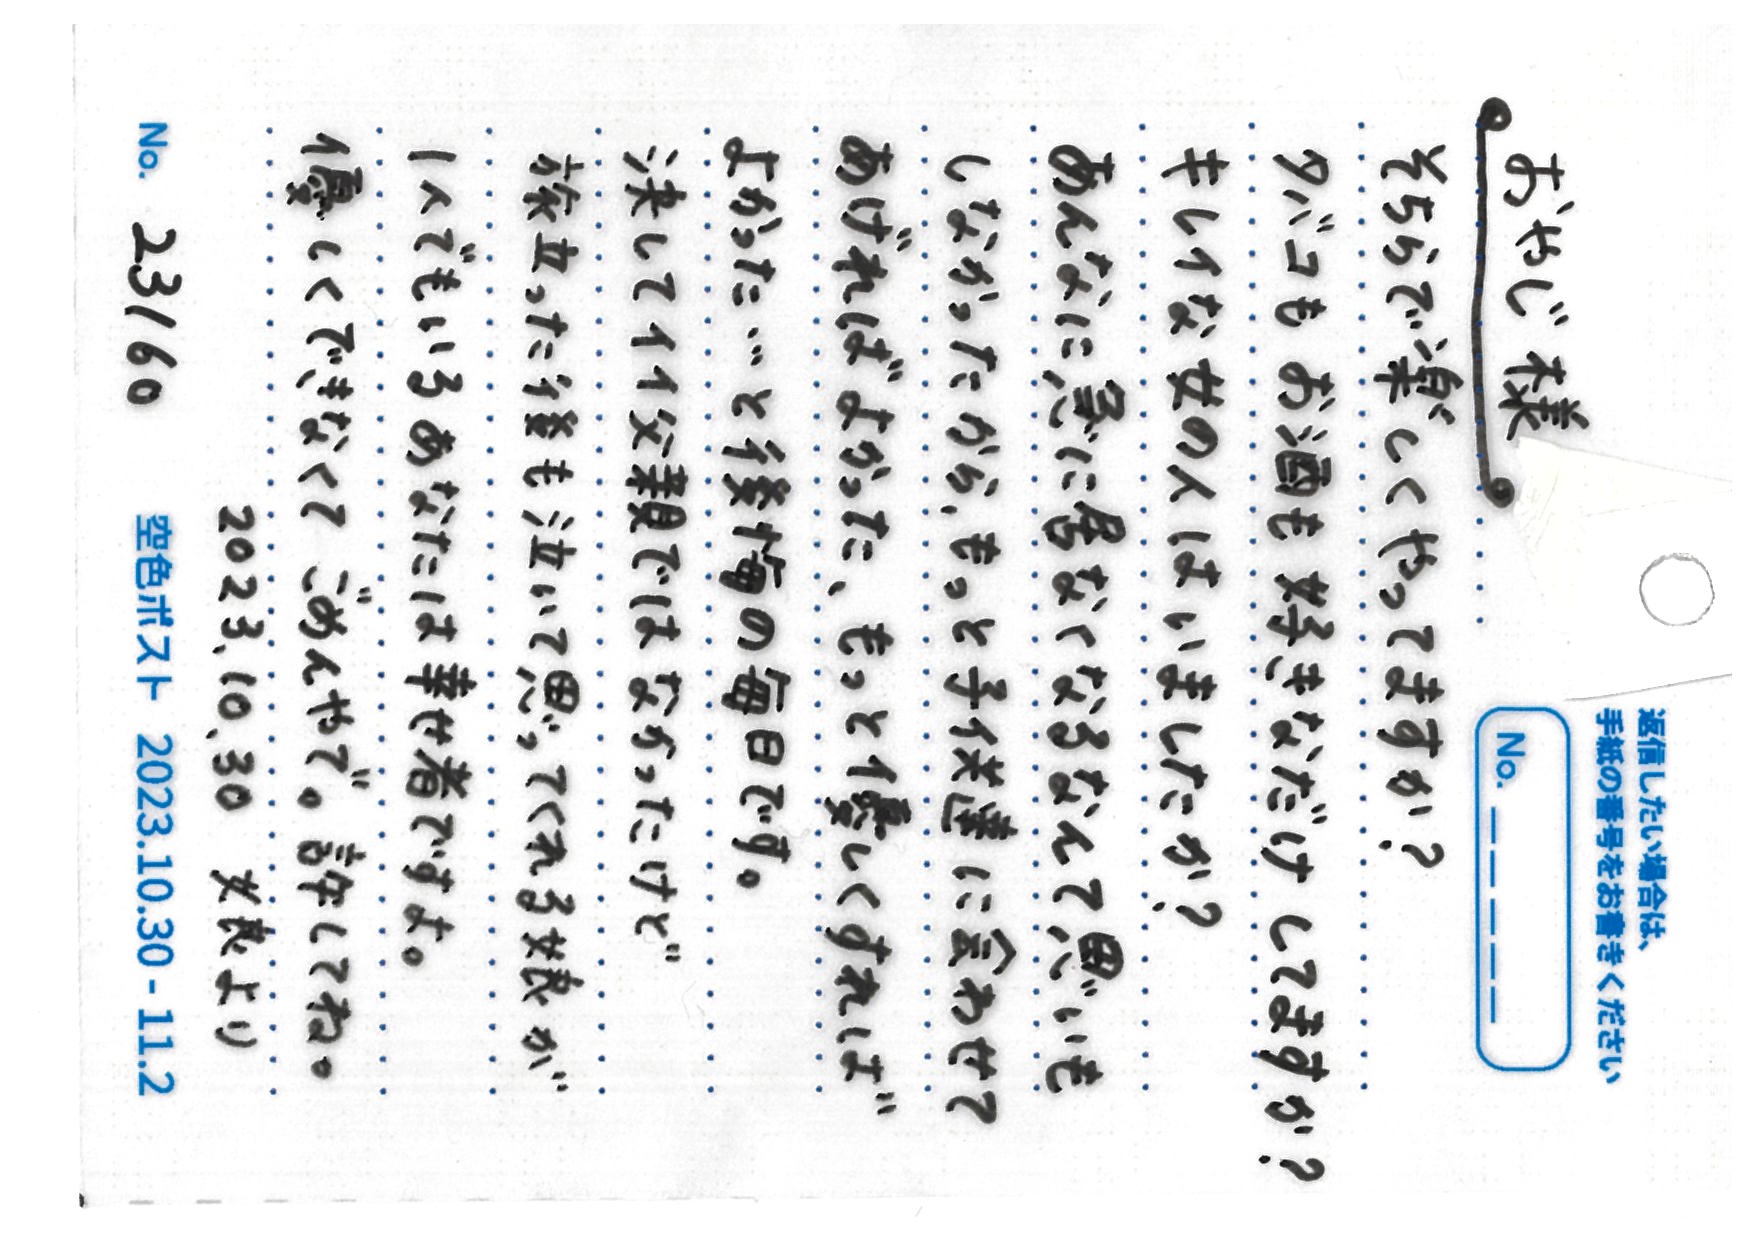 返信したい場合は、
手紙の番号をお書きください
No. _ _ _ _ _
おやじ様
そちらで楽しくやってますか？
タバコも お酒も 好きなだけ してますか？
キレイな 女の人はいましたか？
あんなに急に居なくなるなんて思いも
しなかったから、もっと子供達に会わせて
あげればよかった、もっと優しくすれば
よかった…と後悔の毎日です。
決してイイ父親では なかったけど
旅立った後も泣いて思ってくれる娘が
1人でもいるあなたは幸せ者ですよ。
優しくできなくて ごめんやで。許してね。
2023.10.30 娘より
No. 23160
空色ポスト 2023.10.30 - 11.2